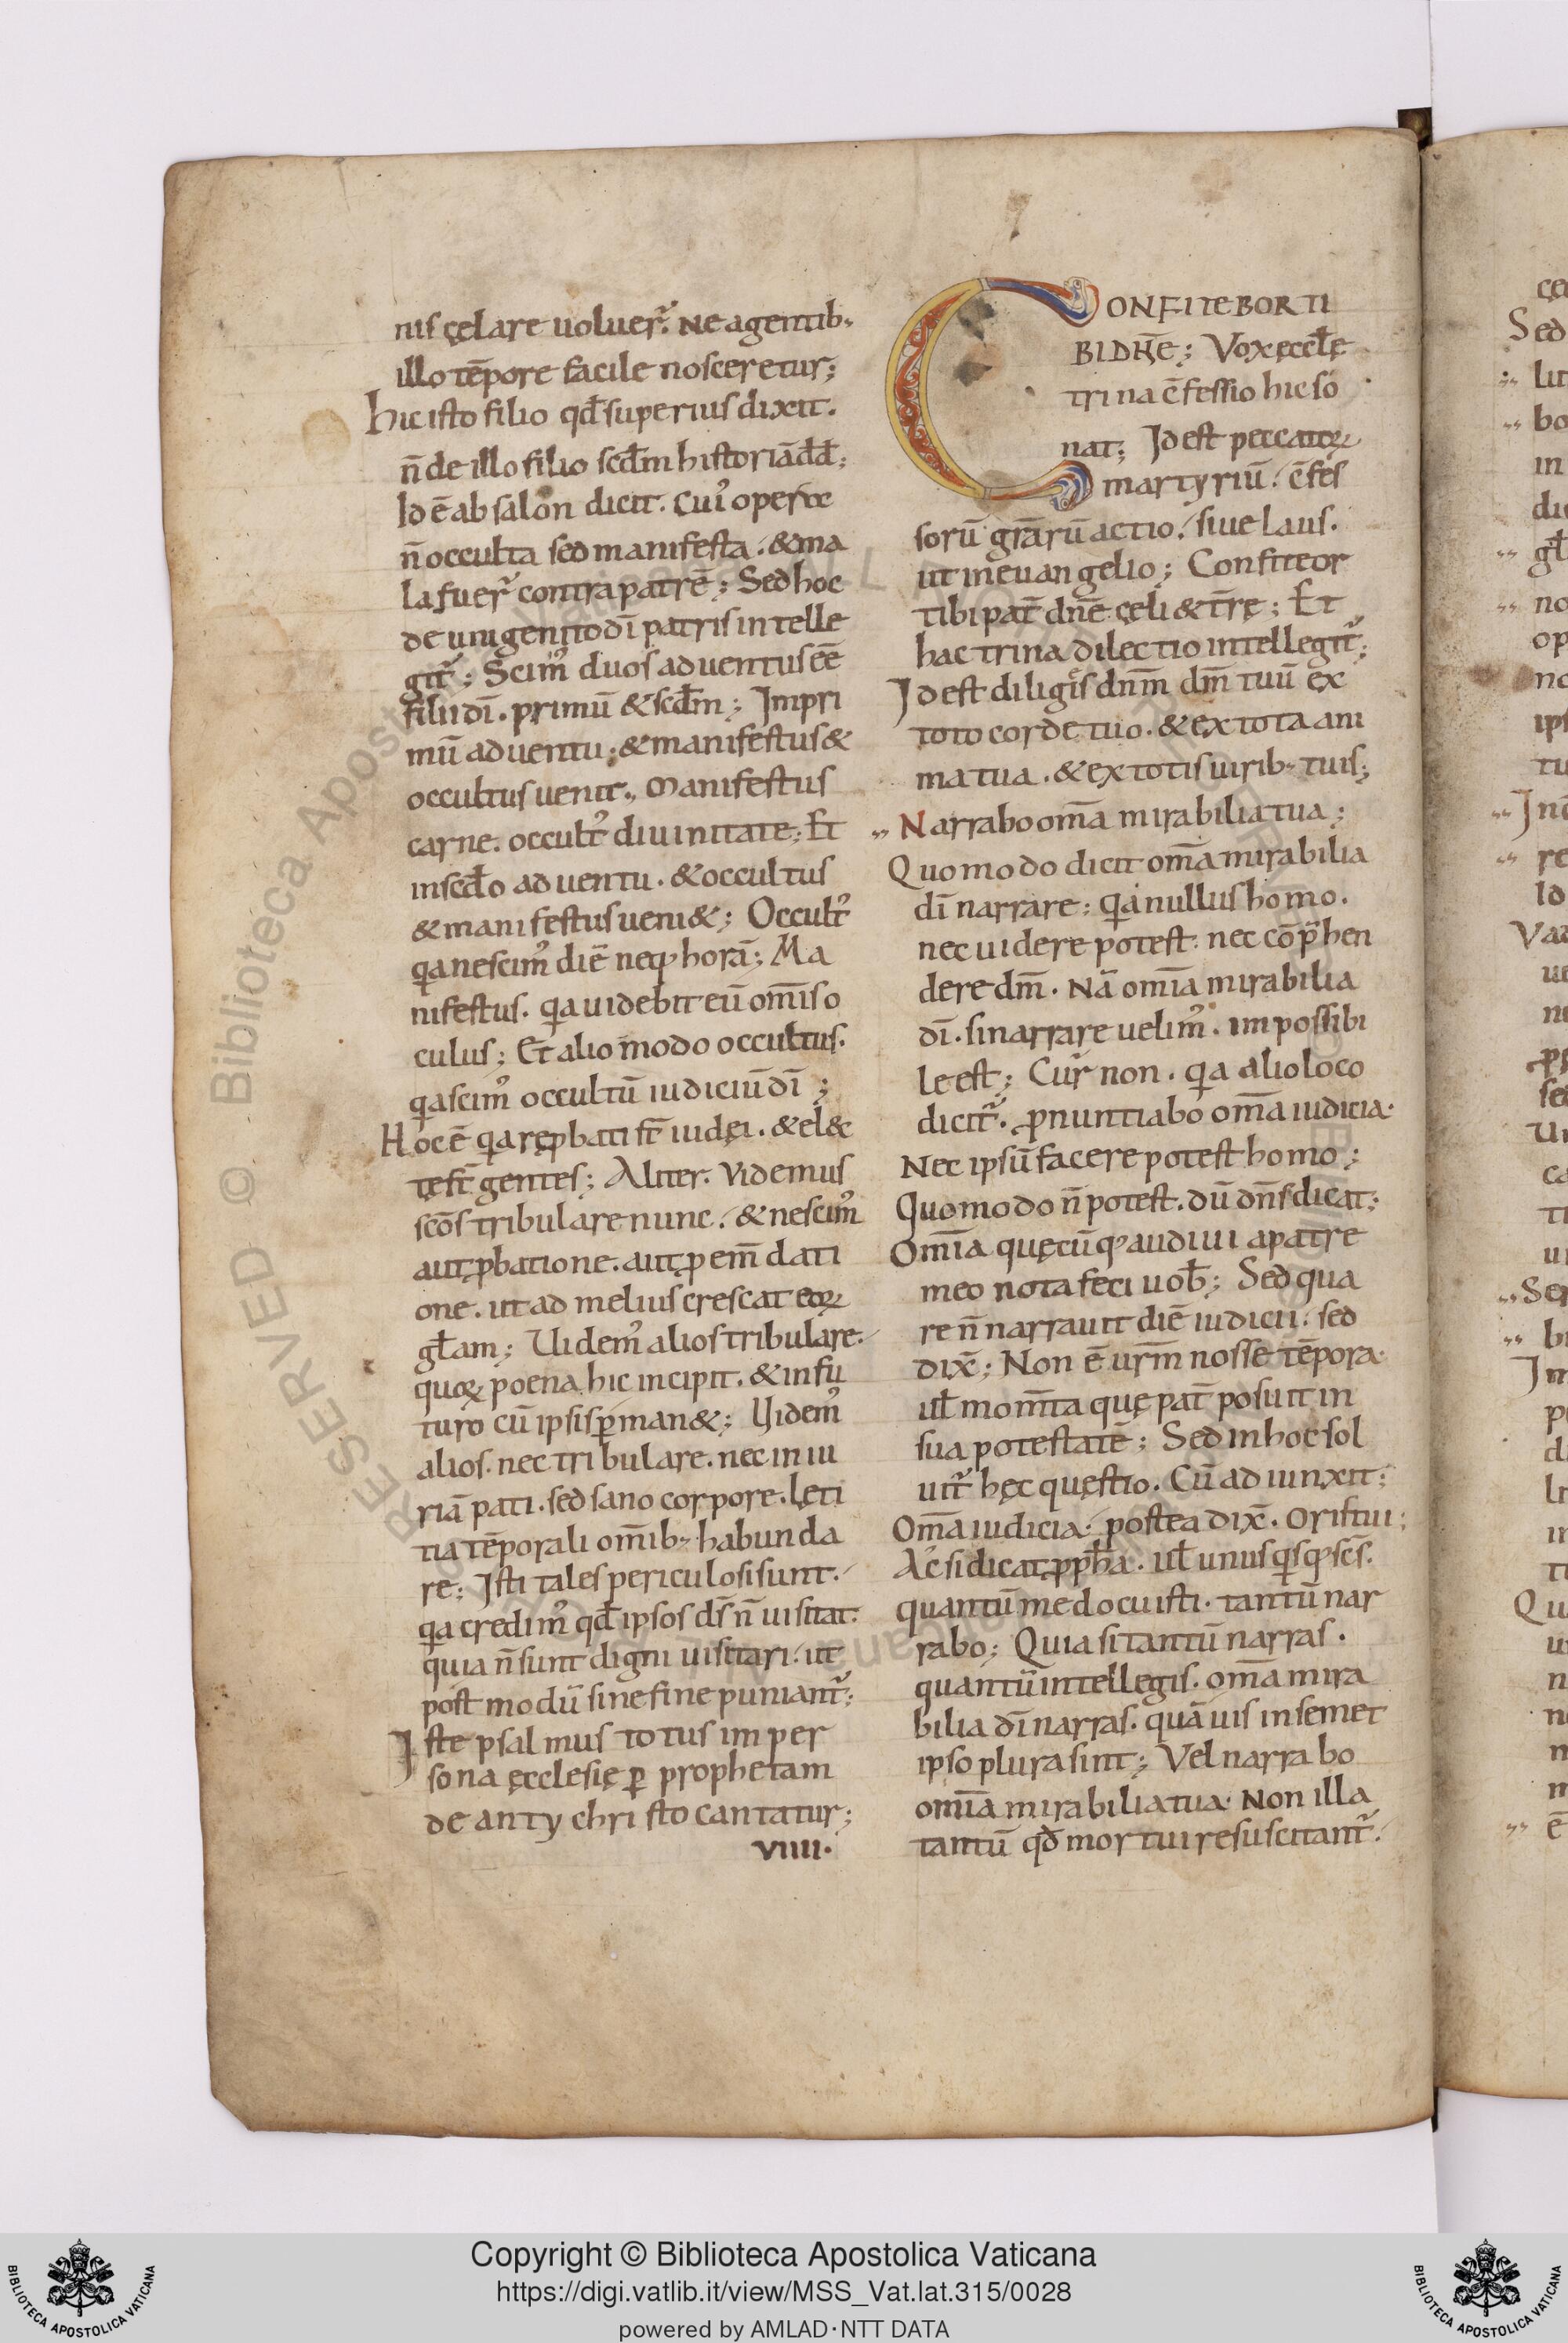 nis çelare uoluer̄. Ne agentib;
illo tēpore facile nosceretur;
hic isto filio qđ superius dixit.
n̄ de illo filio scđm historiā dđ;
Id ē absalon dicit. Cui' opera
n̄ occulta sed manifesta. & ma
la fuer̄ contra patrē; Sed hoc
de unigenito dī patris intelle
git̄; Scim' duos aduentus eē
filii dī. primū & scđm; In pri
mū aduentu; & manifestus &
occultus uenit., Manifestus
carne. occult' diuinitate; Et
in scđo aduentu. & occultus
& manifestus ueni&; Occult'
qa nescim' diē neq; horā; Ma
nifestus. qa uidebit eū om̄is o
culus; Et alio modo occultus.
qa scim' occultū iudiciū dī;
Hoc ē qa reꝓbati st̄ iudęi. & elec
tę st̄ gentes; Aliter. Videmus
scōs tribulare nunc. & nescim'
aut ꝓbatione. aut ꝓ em̄dati
one. ut ad melius crescat eoꝝ
głam; Uidem' alios tribulare.
quoꝝ poena hic incipit. & in fu
turo cū ipsis ꝑman&; Uidem'
alios. nec tribulare. nec in iu
riā pati. sed sano corpore. lęti
tia tēporali om̄ib; habunda
re; Isti tales periculosi sunt.
qa credim' qđ ipsos ds̄ n̄ uisitat.
quia n̄ sunt digni uisitari. ut
post modū sine fine puniant̄;
Iste psalmus totus im per
sona ęcclesię ꝑ prophetam
de antychristo cantatur;
VIIII.
CONFITEBOR TI
BI DN̄E; Vox ęccłę
trina c̄fessio hic so
nat; Id est peccatoꝝ
martyriū. c̄fes
sorū gr̄arū actio. siue laus.
ut in euangelio; Confiteor
tibi pat̄ dn̄e çeli & t̄rę; Et
hac trina dilectio intellegit̄;
Id est diligis dn̄m dm̄ tuū ex
toto corde tuo. & ex tota ani
ma tua. & ex totis uirib; tuis;
,, Narrabo om̄a mirabilia tua;
Quomodo dicit om̄a mirabilia
dī narrare; qa nullus homo.
nec uidere potest. nec cōp̄hen
dere dm̄. Nā om̄ia mirabilia
dī. si narrare uelim'. impossibi
le est; Cur non. qa alio loco
dicit̄. ꝓnuntiabo om̄a iudicia.
Nec ipsū facere potest homo;
Quomodo n̄ potest. dū dn̄s dicat;
Om̄ia quęcūq; audiui a patre
meo nota feci uob̄; Sed qua
re n̄ narrauit diē iudicii. sed
dix̄; Non ē ur̄m nosse tēpora.
uł mom̄ta quę pat̄ posuit in
sua potestatē; Sed in hoc sol
uit̄ hęc quęstio. Cū adiunxit;
Om̄a iudicia. postea dix̄. Oris tui;
Ac si dicat ꝓpħa. uł unusqsq; scs̄.
quantū me docuisti. tantū nar
rabo; Quia si tantū narras.
quantū intellegis. om̄a mira
bilia dī narras. quāuis in semet
ipso plura sint; Vel narrabo
om̄ia mirabilia tua. Non illa
tantū qđ mortui resuscitant̄.
Copyright © Biblioteca Apostolica Vaticana
https://digi.vatlib.it/view/MSS_Vat.lat.315/0028
powered by AMLAD·NTT DATA